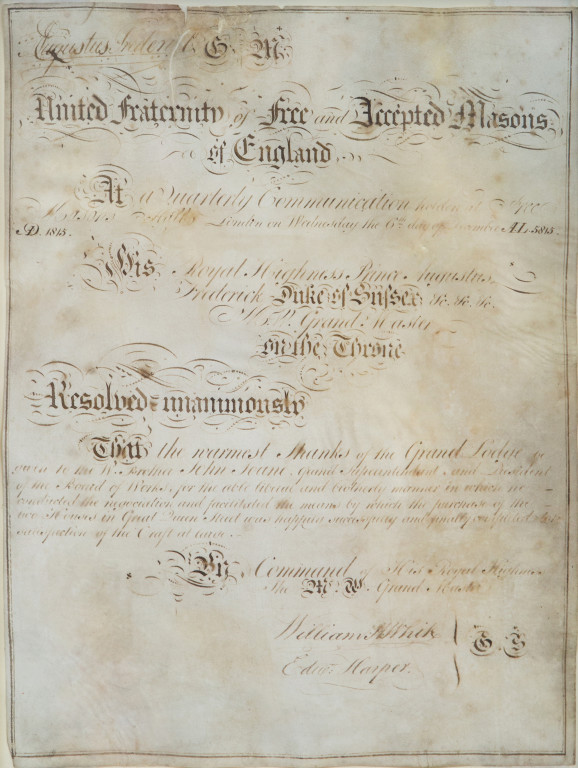 Augustus Frederick G. M.
United Fraternity of Free and Accepted Masons
of England
At a Quarterly Communication holden at Free
Masons London on Wednesday the 6th day of December A.L. 5815.
A.D. 1815.
His Royal Highness Prince Augustus
Frederick Duke of Sussex &c. &c. &c.
M. W. Grand Master
on the Throne
Resolved unanimously
That the warmest Thanks of the Grand Lodge be
given to the W. Brother John Soane Grand Superintendent and President
of the Board of Works, for the able liberal and brotherly manner in which he
conducted the negociation and facilitated the means by which the purchase of the
two Houses in Great Queen Street was happily and finally completed to the
satisfaction of the Craft at large.
By Command of His Royal Highness
The M. W. Grand Master
William H. White
Edwd. Harper. G. S.